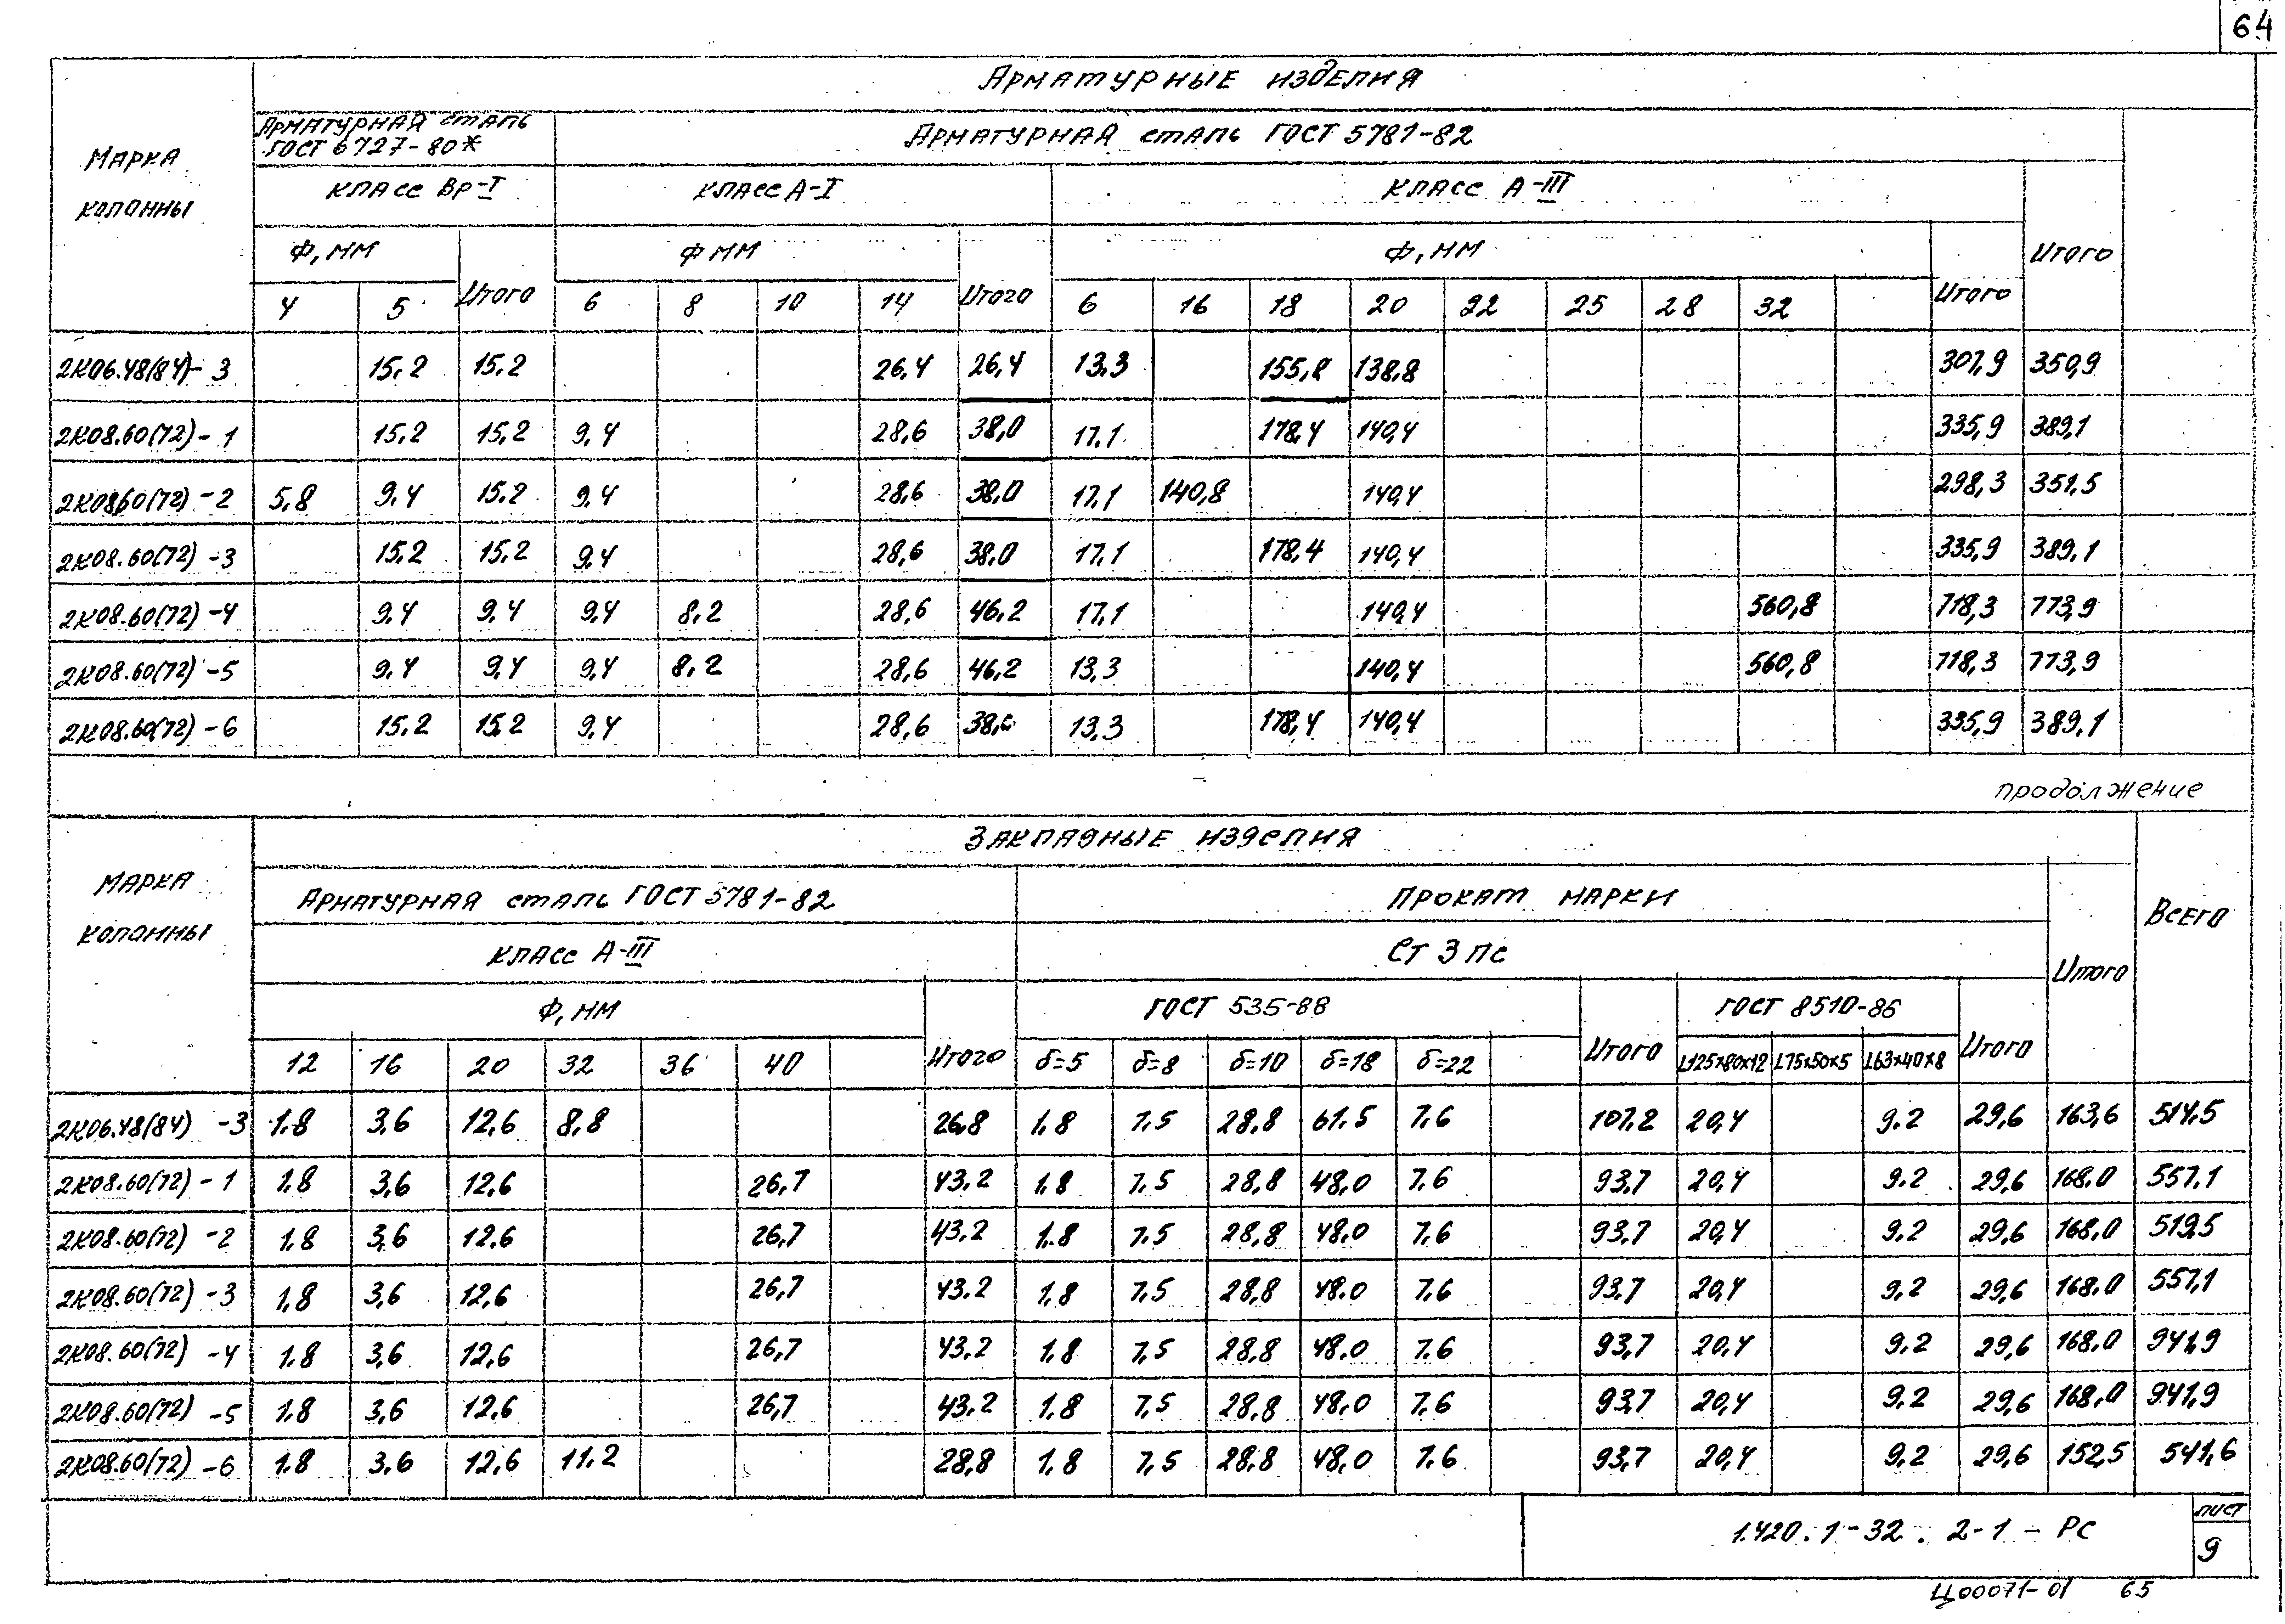 64
Арматурные изделия
Марка колонны
Арматурная сталь ГОСТ 6727-80*
Арматурная сталь ГОСТ 5781-82
Класс Вр-I
Класс А-I
Класс А-III
Итого
Ф, мм
Итого
Ф мм
Итого
Ф, мм
Итого
4 5 6 8 10 14 6 16 18 20 22 25 28 32
2К06.48(84)-3 15,2 15,2 26,4 26,4 13,3 155,8 138,8 307,9 350,9
2К08.60(72)-1 15,2 15,2 9,4 28,6 38,0 17,1 178,4 140,4 335,9 389,1
2К08.60(72)-2 5,8 9,4 15,2 9,4 28,6 38,0 17,1 140,8 140,4 298,3 351,5
2К08.60(72)-3 15,2 15,2 9,4 28,6 38,0 17,1 178,4 140,4 335,9 389,1
2К08.60(72)-4 9,4 9,4 9,4 8,2 28,6 46,2 17,1 140,4 560,8 718,3 773,9
2К08.60(72)-5 9,4 9,4 9,4 8,2 28,6 46,2 13,3 140,4 560,8 718,3 773,9
2К08.60(72)-6 15,2 15,2 9,4 28,6 38,0 13,3 178,4 140,4 335,9 389,1
продолжение
Закладные изделия
Марка колонны
Арматурная сталь ГОСТ 5781-82
Прокат марки
Всего
Класс А-III
Ст 3 пс
Итого
Ф, мм
Итого
ГОСТ 535-88
Итого
ГОСТ 8510-86
Итого
12 16 20 32 36 40 δ=5 δ=8 δ=10 δ=18 δ=22 L125x80x12 L75x50x5 L63x40x8
2К06.48(84)-3 1,8 3,6 12,6 8,8 26,8 1,8 7,5 28,8 61,5 7,6 107,2 20,4 9,2 29,6 163,6 514,5
2К08.60(72)-1 1,8 3,6 12,6 26,7 43,2 1,8 7,5 28,8 48,0 7,6 93,7 20,4 9,2 29,6 168,0 557,1
2К08.60(72)-2 1,8 3,6 12,6 26,7 43,2 1,8 7,5 28,8 48,0 7,6 93,7 20,4 9,2 29,6 168,0 519,5
2К08.60(72)-3 1,8 3,6 12,6 26,7 43,2 1,8 7,5 28,8 48,0 7,6 93,7 20,4 9,2 29,6 168,0 557,1
2К08.60(72)-4 1,8 3,6 12,6 26,7 43,2 1,8 7,5 28,8 48,0 7,6 93,7 20,4 9,2 29,6 168,0 941,9
2К08.60(72)-5 1,8 3,6 12,6 26,7 43,2 1,8 7,5 28,8 48,0 7,6 93,7 20,4 9,2 29,6 168,0 941,9
2К08.60(72)-6 1,8 3,6 12,6 11,2 28,8 1,8 7,5 28,8 48,0 7,6 93,7 20,4 9,2 29,6 152,5 541,6
1.420.1-32.2-1-РС
лист
9
Ц00071-01 65